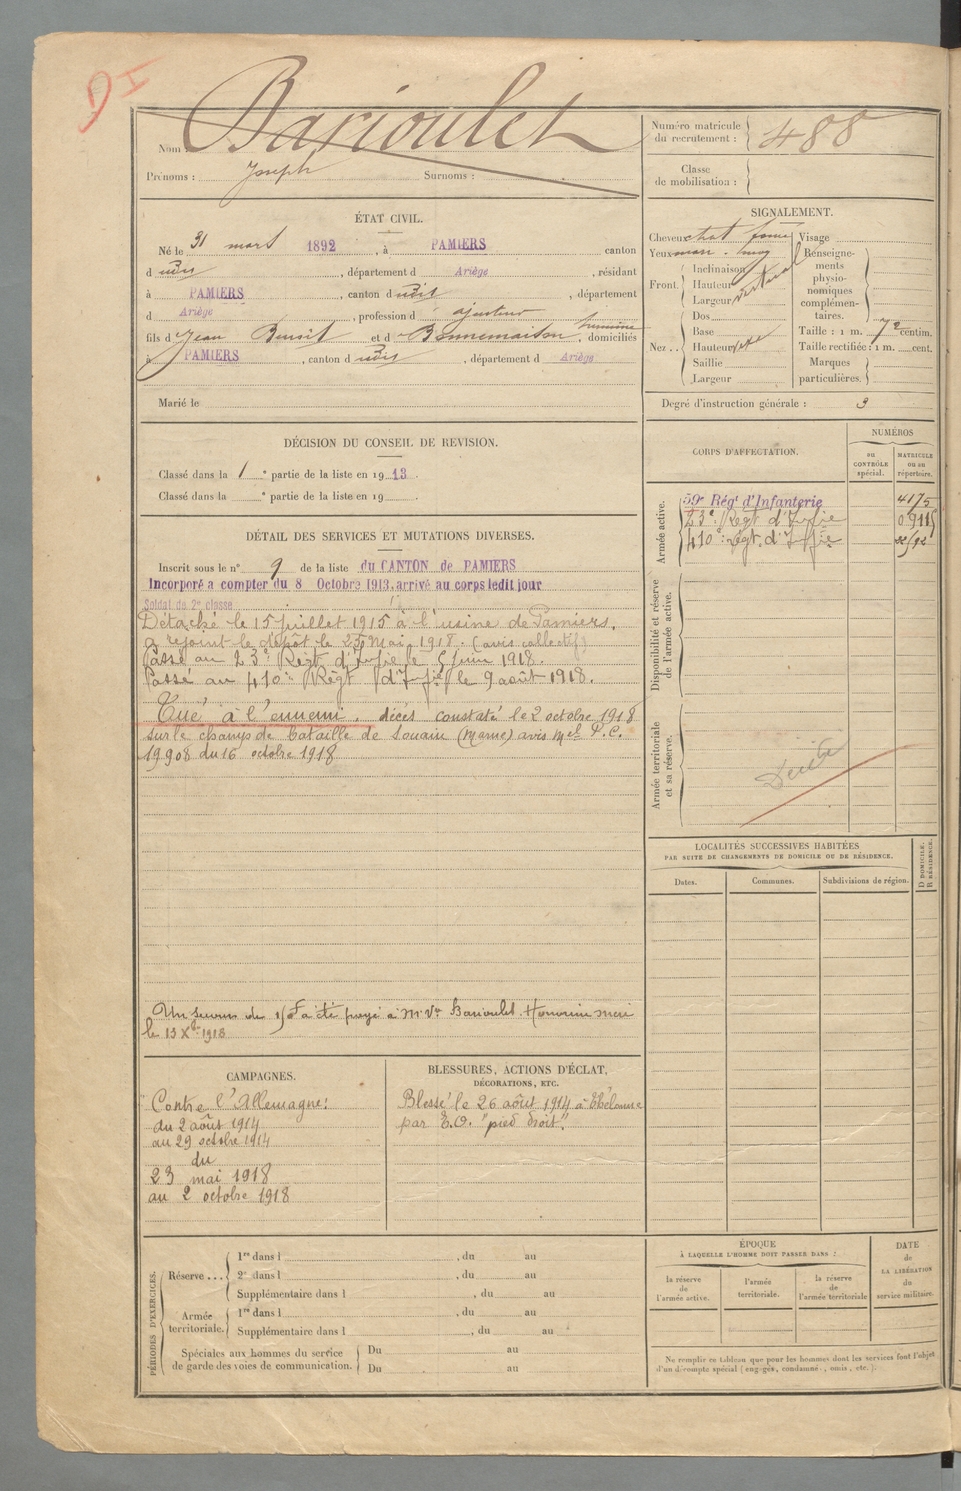 Nom : Barioulet
Prénoms : Joseph Surnoms :
Numéro matricule du recrutement : 488
Classe de mobilisation :
ÉTAT CIVIL.
Né le 31 mars 1892, à PAMIERS canton
d udit, département d Ariège, résidant
à PAMIERS, canton d udit, département
d Ariège, profession d ajusteur
fils d Jean Benoit et d Bonnemaison honorine, domiciliés
à PAMIERS, canton d udit, département d Ariège
Marié le
SIGNALEMENT.
Cheveux chat foncé
Yeux
Front.
Inclinaison
Hauteur vertical
Largeur
Nez ..
Dos
Base
Hauteur
Saillie
Largeur
Visage
Renseignements physionomiques complémentaires.
Taille : 1 m. 72 centim.
Taille rectifiée : 1 m. cent.
Marques particulières.
Degré d'instruction générale : 3
DÉCISION DU CONSEIL DE REVISION.
Classé dans la 1e partie de la liste en 1913.
Classé dans la e partie de la liste en 19
CORPS D'AFFECTATION.
NUMÉROS
au CONTRÔLE spécial.
MATRICULE ou au répertoire.
Armée active.
59e Régt d'Infanterie 4175
23e Regt d'Infie
410e régt. d'Infie
Disponibilité et réserve de l'armée active.
Armée territoriale et sa réserve.
DÉTAIL DES SERVICES ET MUTATIONS DIVERSES.
Inscrit sous le n° 9 de la liste du CANTON de PAMIERS
Incorporé a compter du 8 Octobre 1913, arrivé au corps ledit jour
Soldat de 2e classe
Détaché le 15 juillet 1915 à l'usine de Pamiers.
a rejoint le dépôt le 23 Mai 1918. (avis collectif)
Passé au 23e Régt d'Infie le 5 juin 1918.
Passé au 410e Régt d'Infie le 9 août 1918.
Tué à l'ennemi. décès constaté le 2 octobre 1918
sur le champs de bataille de Souain (Marne) avis Mel P.C.
19908 du 16 octobre 1918
Un secours de 150f a été payé à Me Vve Barioulet Honorine mère
le 13 Xbre 1918
LOCALITÉS SUCCESSIVES HABITÉES
PAR SUITE DE CHANGEMENTS DE DOMICILE OU DE RÉSIDENCE.
Dates.
Communes.
Subdivisions de région.
D DOMICILE.
R RÉSIDENCE.
CAMPAGNES.
Contre l'Allemagne:
du 2 août 1914
au 29 octobre 1914
du
23 mai 1918
au 2 octobre 1918
BLESSURES, ACTIONS D'ÉCLAT,
DÉCORATIONS, ETC.
Blessé le 26 août 1914 à Thélonne
par E.O. "pied droit".
PÉRIODES D'EXERCICES.
Réserve ...
1re dans l , du au
2e dans l , du au
Supplémentaire dans l , du au
Armée territoriale.
1re dans l , du au
Supplémentaire dans l , du au
Spéciales aux hommes du service de garde des voies de communication.
Du au
Du au
ÉPOQUE
À LAQUELLE L'HOMME DOIT PASSER DANS :
la réserve de l'armée active.
l'armée territoriale.
la réserve de l'armée territoriale
DATE de LA LIBÉRATION du service militaire.
Ne remplir ce tableau que pour les hommes dont les services font l'objet
d'un décompte spécial (engagés, condamnés, omis, etc.).